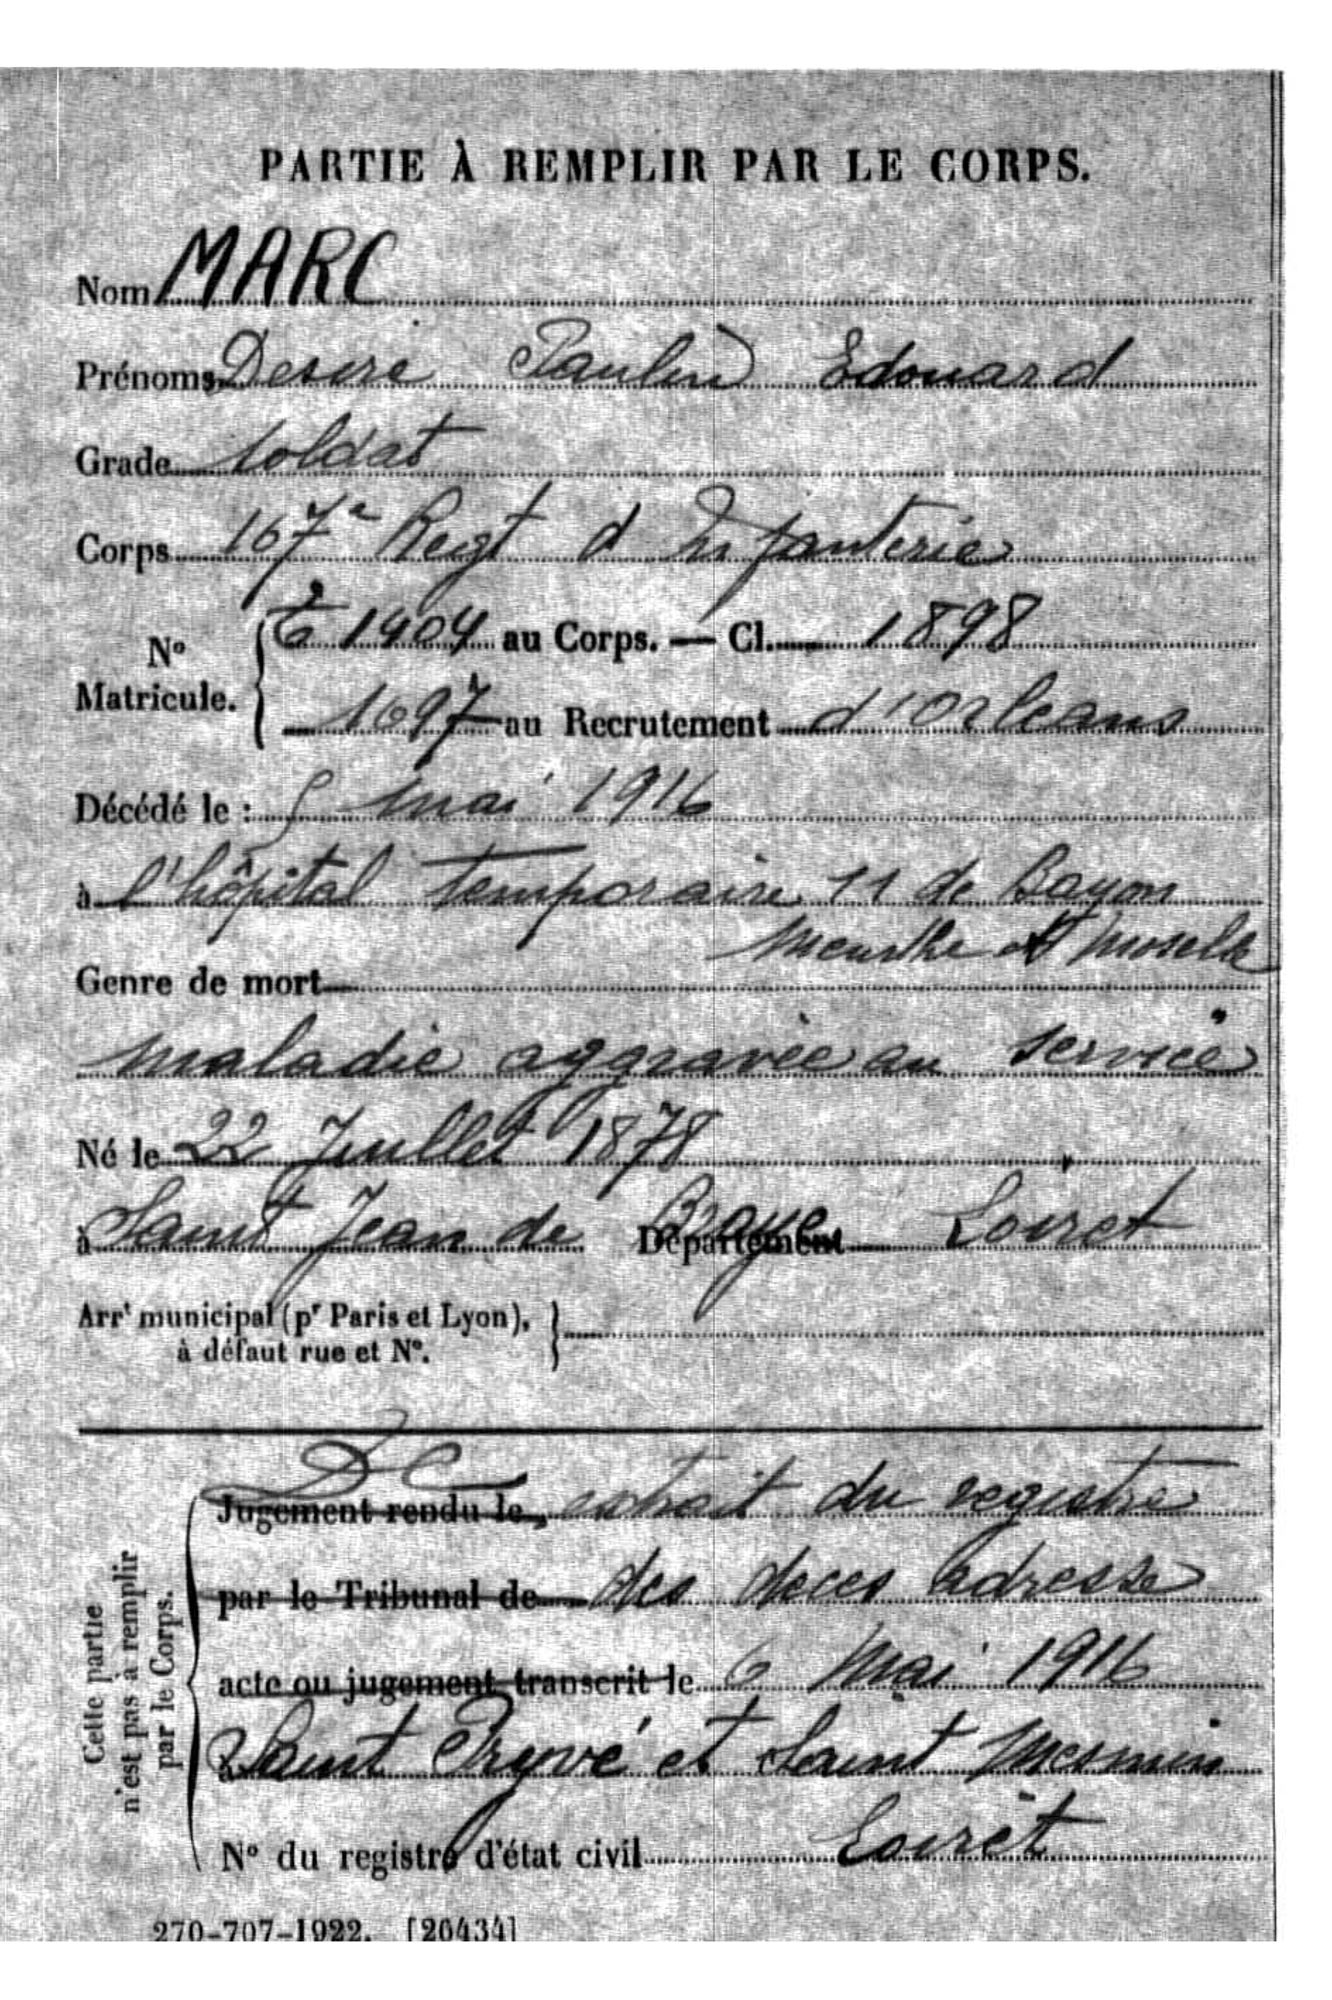 PARTIE À REMPLIR PAR LE CORPS.
Nom MARC
Prénoms Desire Paulin Edouard
Grade soldat
Corps 167e Regt d Infanterie
No Matricule. 1904 au Corps. — Cl. 1898
1697 au Recrutement d'Orleans
Décédé le : 5 mai 1916
à l'hôpital temporaire 11 de Bayon
Meurthe et Moselle
Genre de mort
maladie aggravée au service
Né le 22 Juillet 1878
à Saint Jean de Braye Département Loiret
Arrt municipal (pr Paris et Lyon),
à défaut rue et No.
Cette partie
n'est pas à remplir
par le Corps.
Jugement rendu le, extrait du registre
par le Tribunal de des deces adresse
acte ou jugement transcrit le 6 Mai 1916
à Saint Pryvé et Saint Mesmin
Loiret
No du registre d'état civil
270-707-1922. [26434]